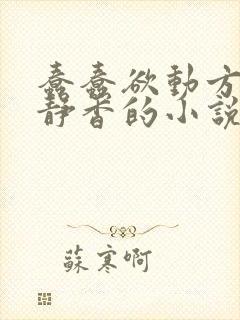 蠢蠢欲動方
靜香的小說
蘇寒啊